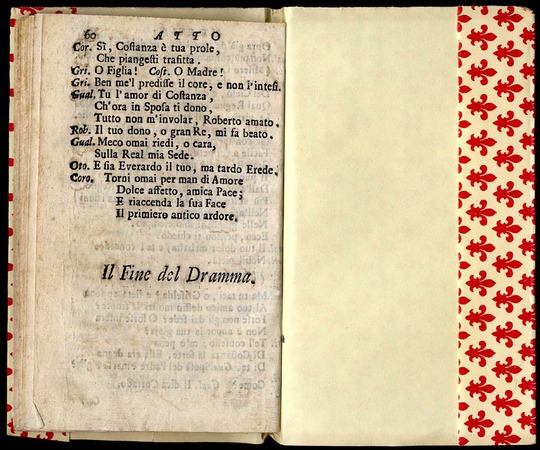 60 ATTO
Cor. Sì, Costanza è tua prole,
Che piangesti trafitta.
Gri. O Figlia! Cost. O Madre!
Gri. Ben me'l predisse il core, e non l'intesi.
Gual. Tu l'amor di Costanza,
Ch'ora in Sposa ti dono,
Tutto non m'involar, Roberto amato.
Rob. Il tuo dono, o gran Re, mi fa beato.
Gual. Meco omai riedi, o cara,
Sulla Real mia Sede.
Oto. E sia Everardo il tuo, ma tardo Erede.
Coro. Torni omai per man di Amore
Dolce affetto, amica Pace;
E riaccenda la sua Face
Il primiero antico ardore.
Il Fine del Dramma.